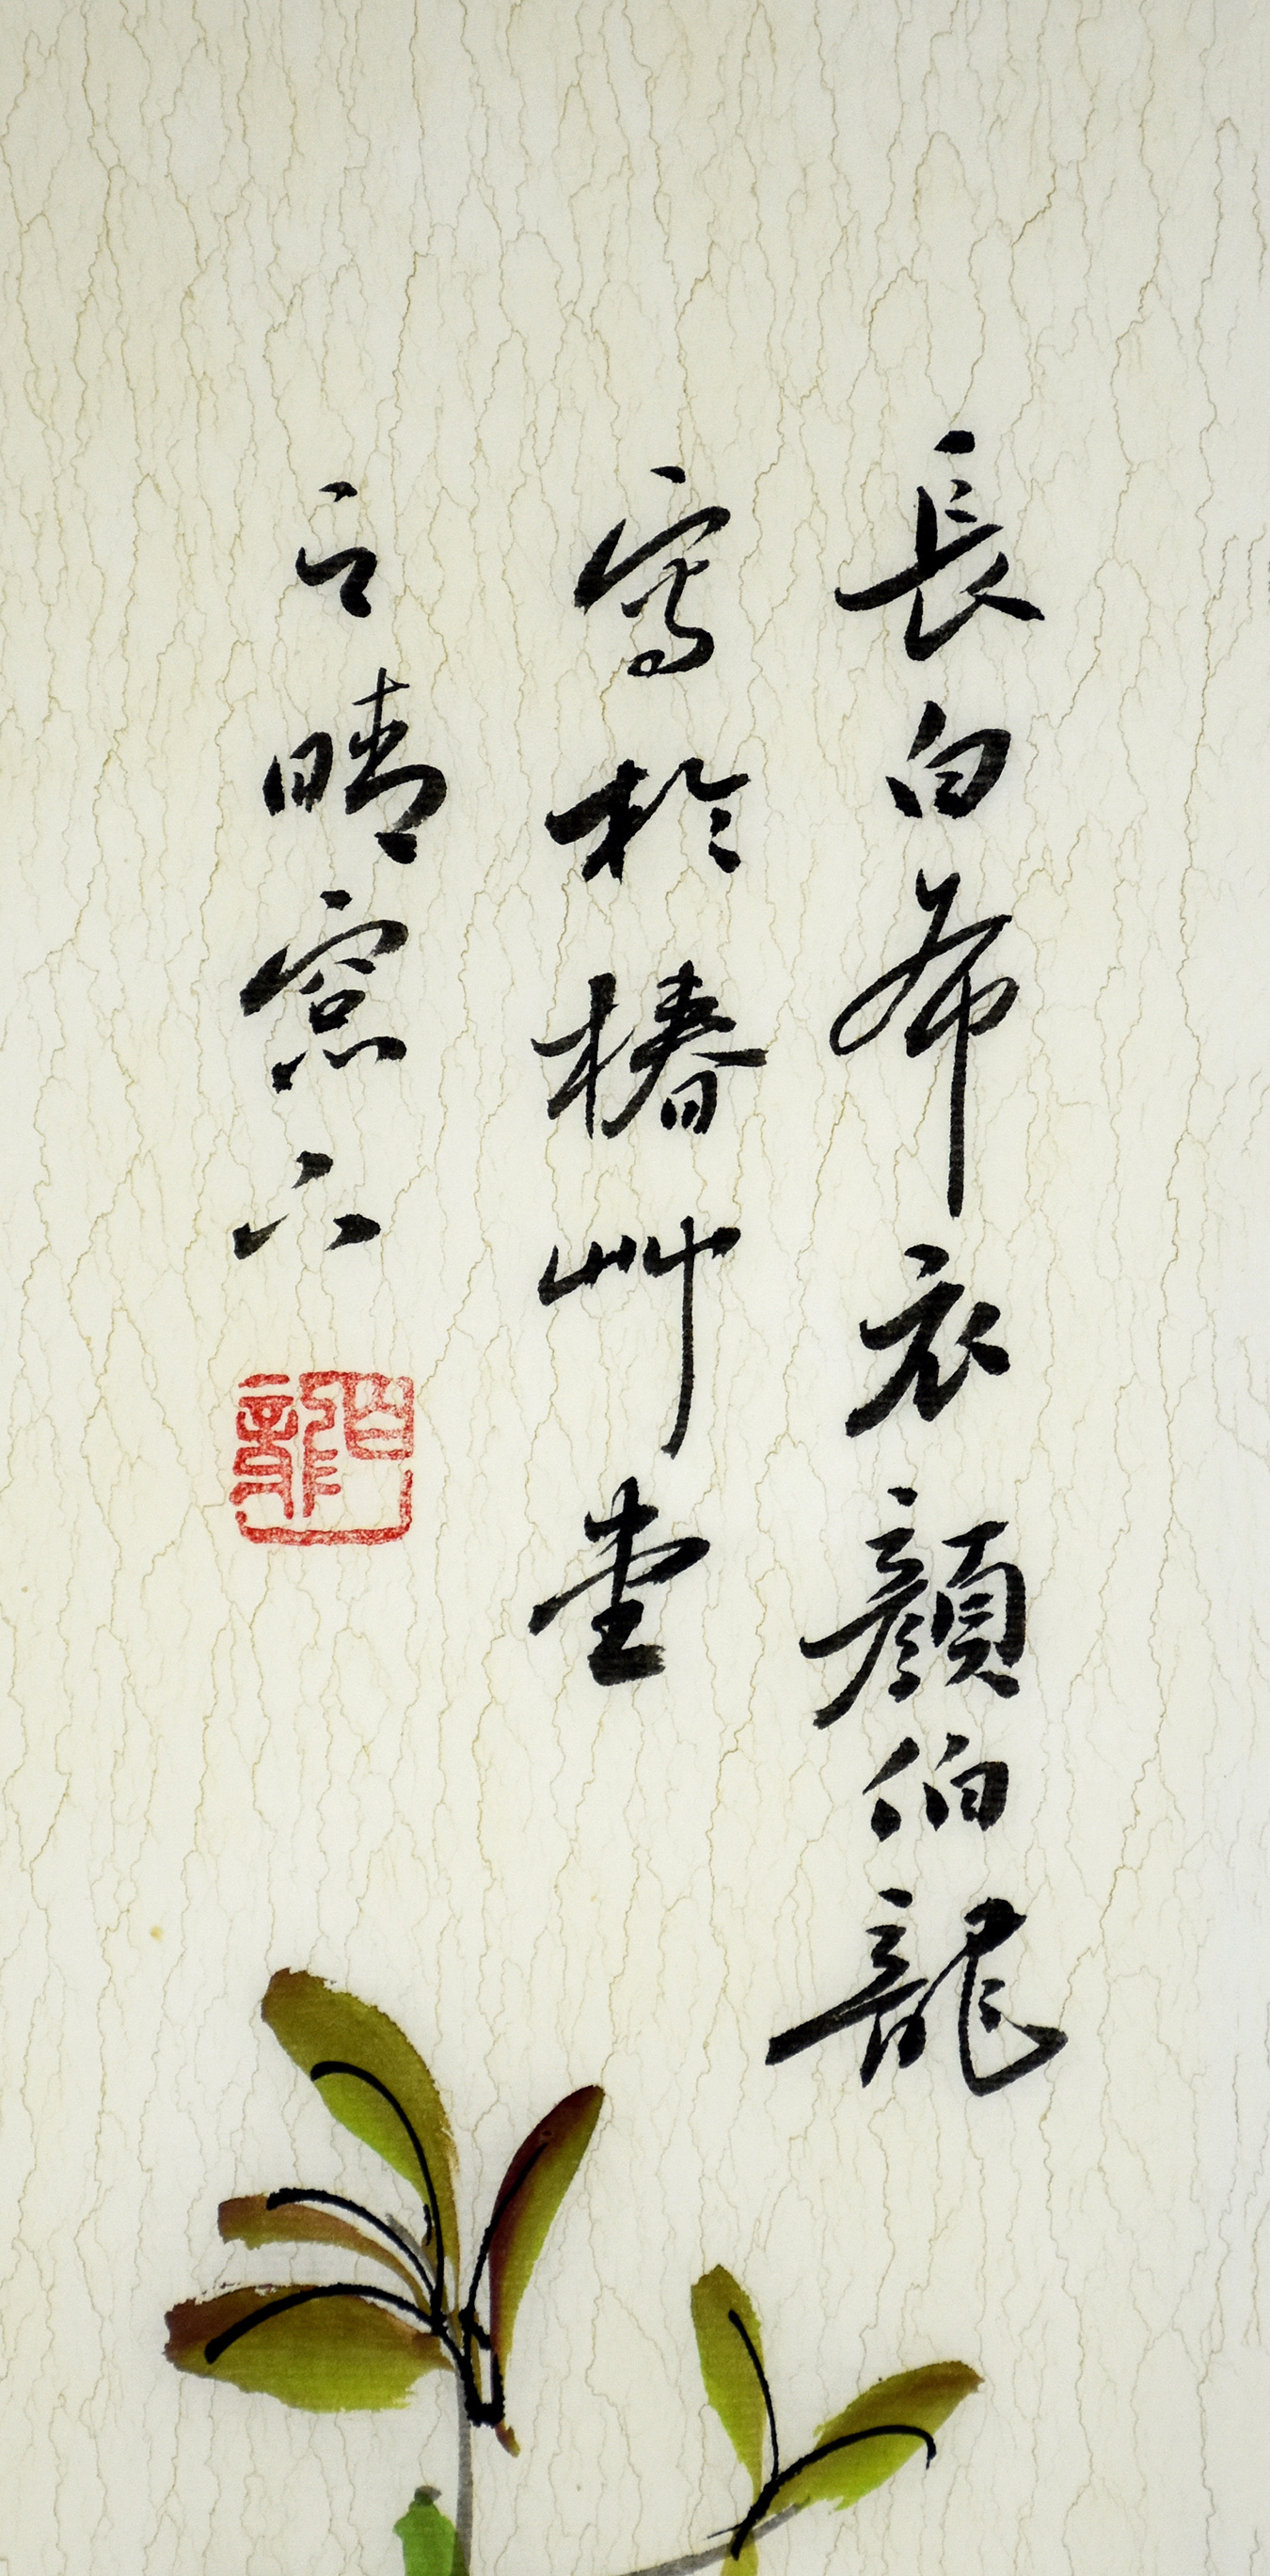 長白布衣顏伯龍
寫於椿艸堂
之晴窓下
伯龍